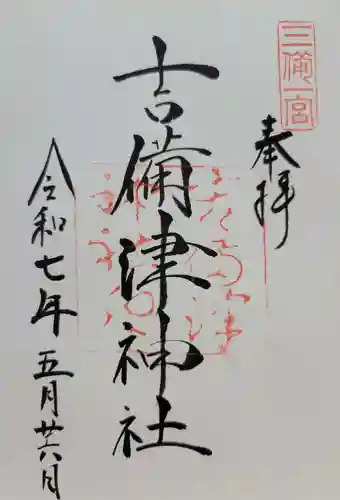 三備一宮
奉拝
吉備津神社
令和七年五月廿六日